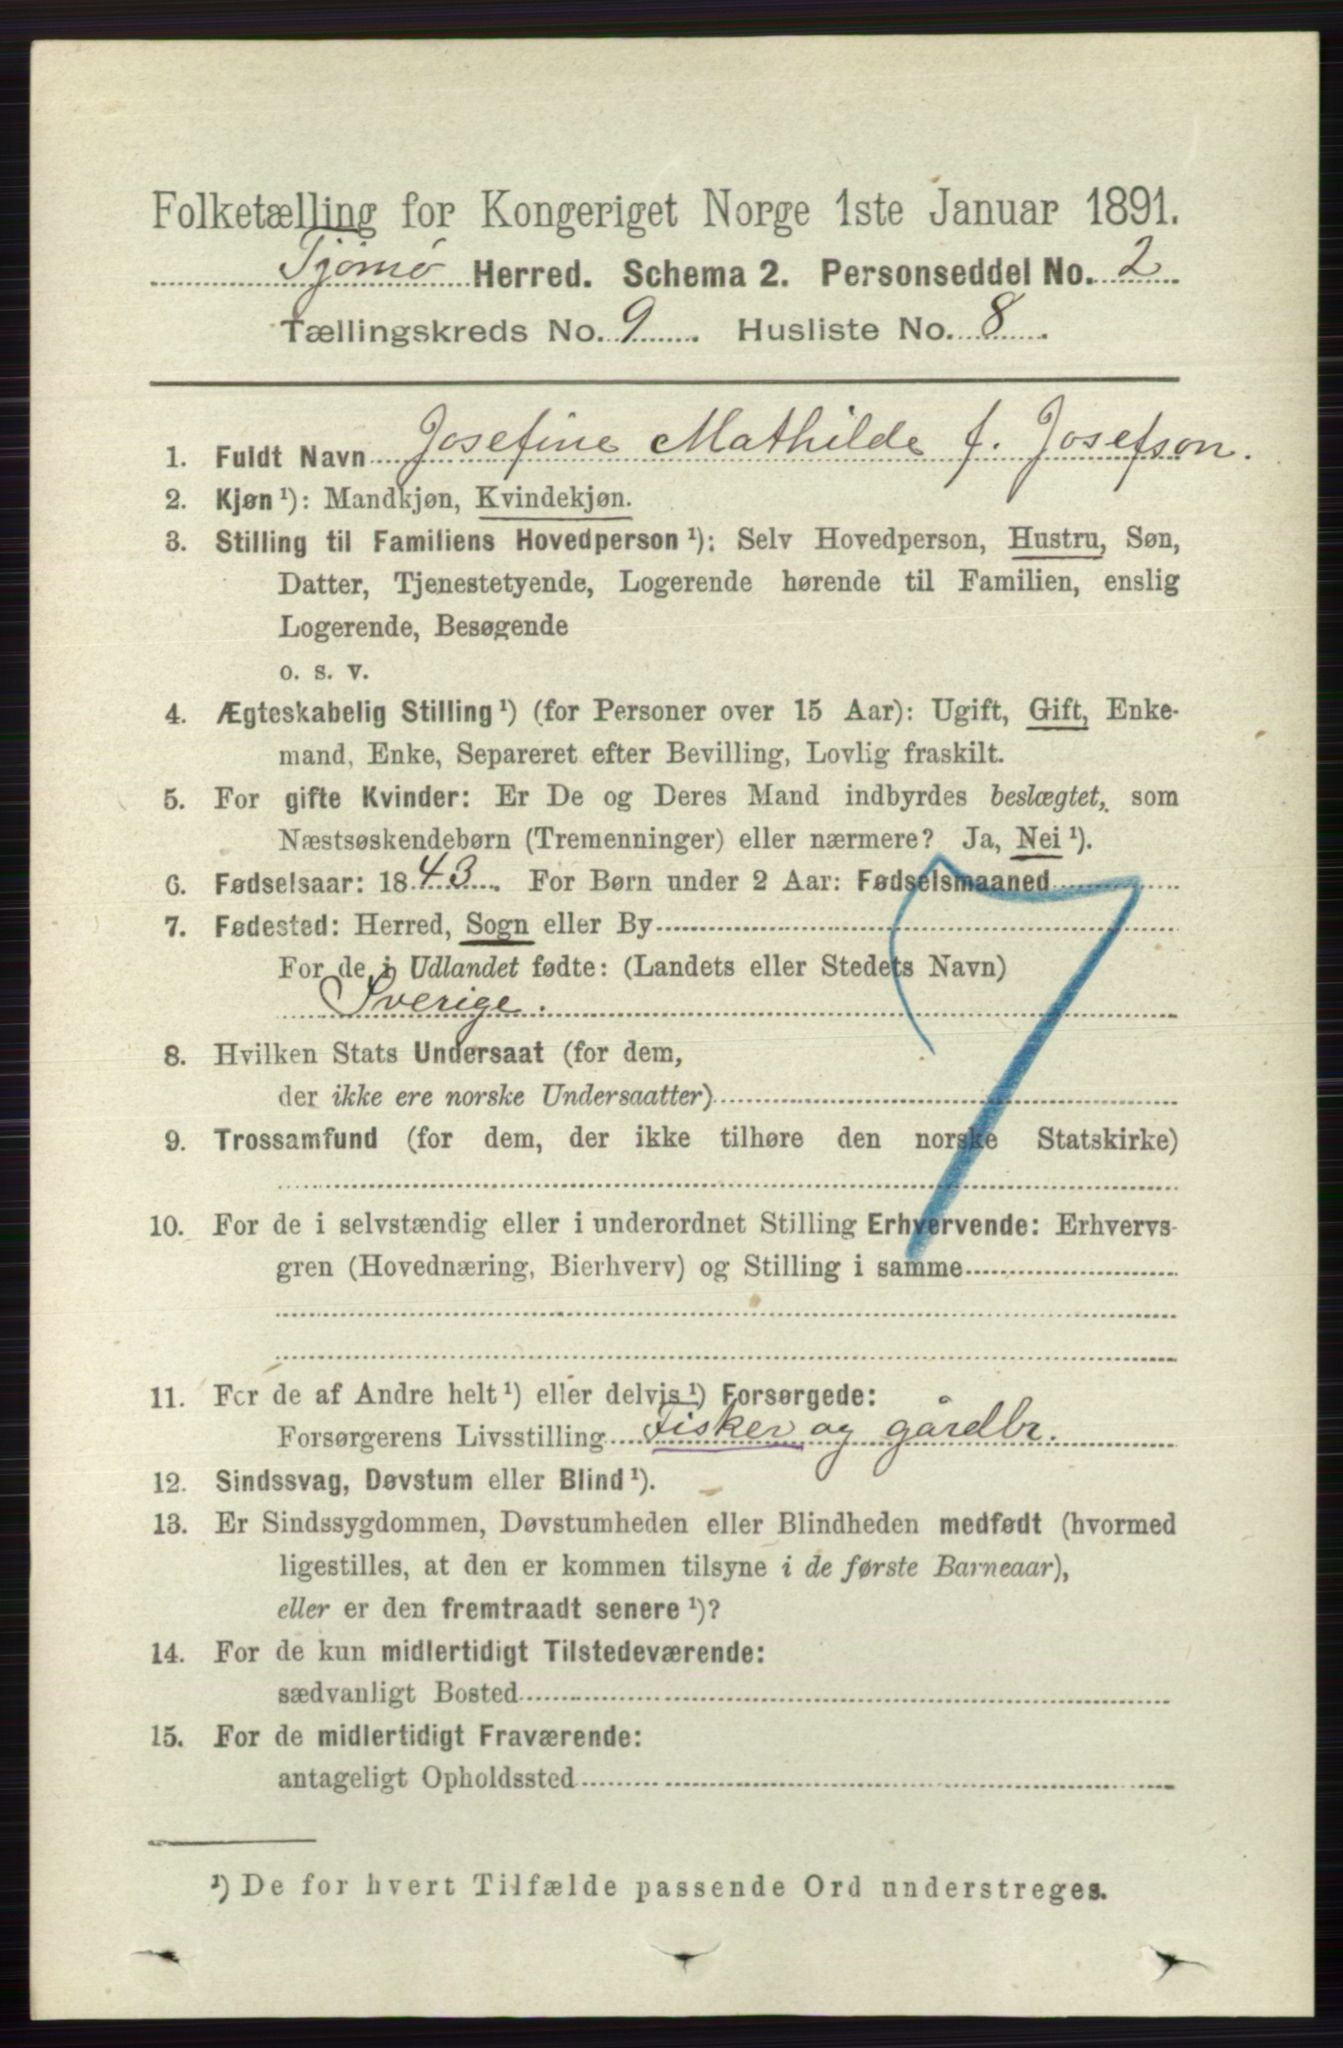 Folketælling for Kongeriget Norge 1ste Januar 1891.
Tjømø Herred. Schema 2. Personseddel No. 2
Tællingskreds No. 9. Husliste No. 8.
1. Fuldt Navn Josefine Mathilde f. Josefson.
2. Kjøn ¹): Mandkjøn, Kvindekjøn.
3. Stilling til Familiens Hovedperson ¹): Selv Hovedperson, Hustru, Søn,
Datter, Tjenestetyende, Logerende hørende til Familien, enslig
Logerende, Besøgende
o. s. v.
4. Ægteskabelig Stilling ¹) (for Personer over 15 Aar): Ugift, Gift, Enke-
mand, Enke, Separeret efter Bevilling, Lovlig fraskilt.
5. For gifte Kvinder: Er De og Deres Mand indbyrdes beslægtet, som
Næstsøskendebørn (Tremenninger) eller nærmere? Ja, Nei ¹).
6. Fødselsaar: 1843. For Børn under 2 Aar: Fødselsmaaned
7. Fødested: Herred, Sogn eller By
For de i Udlandet fødte: (Landets eller Stedets Navn)
Sverige.
8. Hvilken Stats Undersaat (for dem,
der ikke ere norske Undersaatter)
9. Trossamfund (for dem, der ikke tilhøre den norske Statskirke)
10. For de i selvstændig eller i underordnet Stilling Erhvervende: Erhvervs-
gren (Hovednæring, Bierhverv) og Stilling i samme
7
11. For de af Andre helt ¹) eller delvis ¹) Forsørgede:
Forsørgerens Livsstilling Fisker og gårdbr.
12. Sindssvag, Døvstum eller Blind ¹).
13. Er Sindssygdommen, Døvstumheden eller Blindheden medfødt (hvormed
ligestilles, at den er kommen tilsyne i de første Barneaar),
eller er den fremtraadt senere ¹)?
14. For de kun midlertidigt Tilstedeværende:
sædvanligt Bosted
15. For de midlertidigt Fraværende:
antageligt Opholdssted
¹) De for hvert Tilfælde passende Ord understreges.